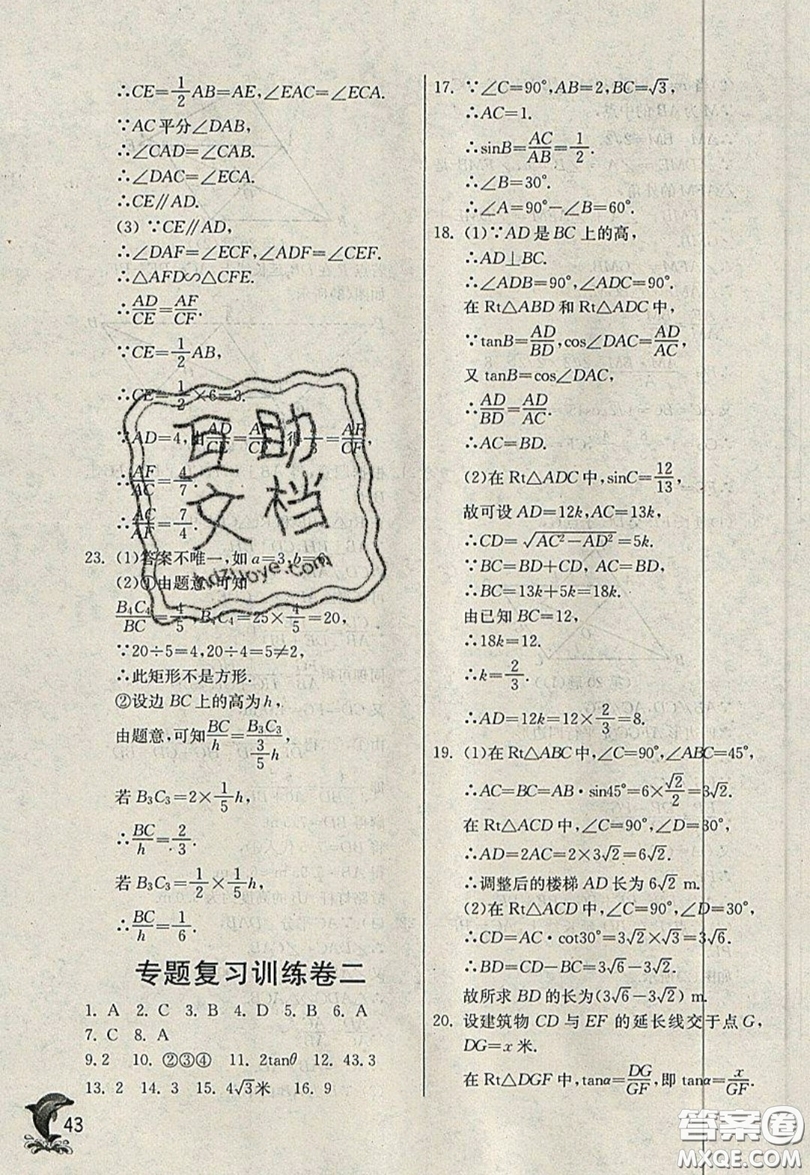 ∴CE=1/2AB=AE,∠EAC=∠ECA.
∵AC平分∠DAB,
∴∠CAD=∠CAB.
∴∠DAC=∠ECA.
∴CE∥AD.
(3) ∵CE∥AD,
∴∠DAF=∠ECF,∠ADF=∠CEF.
∴△AFD∽△CFE.
∴AD/CE=AF/CF.
∵CE=1/2AB,
∴CE=1/2×6=3.
∵AD=4,
∴AF/AC=4/7.
∴AC/AF=7/4.
23. (1)答案不唯一,如a=3,b=
(2)①由题意,可知
B₄C₄/BC=4/5,B₄C₄=25×4/5=20,
∵20÷5=4,20÷4=5≠2,
∴此矩形不是方形.
②设边BC上的高为h,
由题意,可知BC/h=B₃C₃/(3/5 h),
若B₃C₃=2×1/5h,
∴BC/h=2/3.
若B₃C₃=1/2×1/5h,
∴BC/h=1/6.
专题复习训练卷二
1. A 2. C 3. A 4. D 5. B 6. A
7. C 8. A
9. 2 10. ②③④ 11. 2tanθ 12. 43.3
13. 2 14. 3 15. 4√3米 16. 9
43
17. ∵∠C=90°,AB=2,BC=√3,
∴AC=1.
∴sinB=AC/AB=1/2.
∴∠B=30°.
∴∠A=90°-∠B=60°.
18. (1)∵AD是BC上的高,
∴AD⊥BC.
∴∠ADB=90°,∠ADC=90°.
在Rt△ABD和Rt△ADC中,
∵tanB=AD/BD,cos∠DAC=AD/AC,
又tanB=cos∠DAC,
∴AD/BD=AD/AC.
∴AC=BD.
(2)在Rt△ADC中,sinC=12/13,
故可设AD=12k,AC=13k,
∴CD=√(AC²-AD²)=5k.
∵BC=BD+CD,AC=BD,
∴BC=13k+5k=18k.
由已知BC=12,
∴18k=12.
∴k=2/3.
∴AD=12k=12×2/3=8.
19. (1)在Rt△ABC中,∠C=90°,∠ABC=45°,
∴AC=BC=AB·sin45°=6×√2/2=3√2.
在Rt△ACD中,∠C=90°,∠D=30°,
∴AD=2AC=2×3√2=6√2.
∴调整后的楼梯AD长为6√2 m.
(2)在Rt△ACD中,∠C=90°,∠D=30°,
∴CD=AC·cot30°=3√2×√3=3√6.
∴BD=CD-BC=3√6-3√2.
故所求BD的长为(3√6-3√2)m.
20. 设建筑物CD与EF的延长线交于点G,
DG=x米.
在Rt△DGF中,tanα=DG/GF,即tanα=x/GF.
互助
文档
答案圈
MXQE.COM